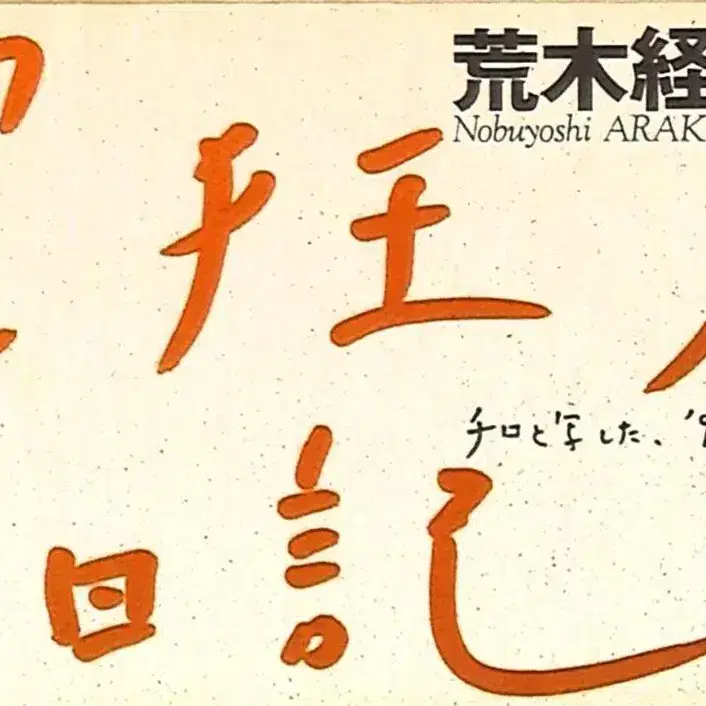 荒木経
Nobuyoshi ARAK
狂
チロと写した、'9
日記